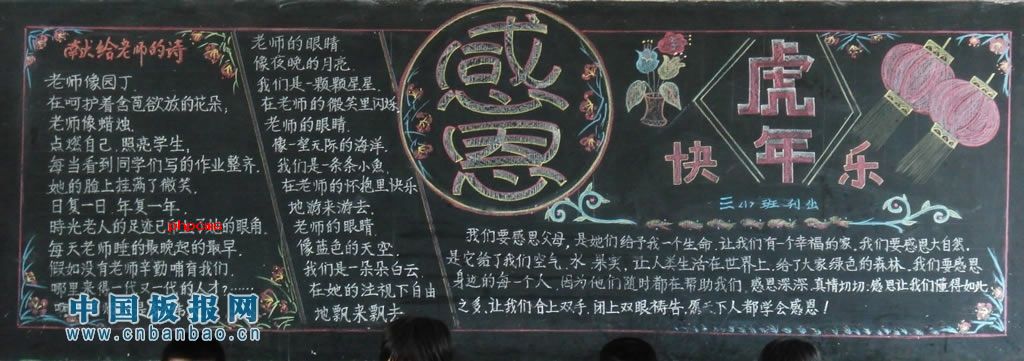 献给老师的诗
老师像园丁.
在呵护着含苞欲放的花朵;
老师像蜡烛.
点燃自己.照亮学生,
每当看到同学们写的作业整齐.
她的脸上挂满了微笑.
日复一日.年复一年,
時光老人的足迹已 她的眼角.
每天老师睡的最晚起的最早.
假如没有老师辛勤哺育我们.
哪里来得一代又一代的人才?……
中国板报网
www.cnbanbao.cn
老师的眼睛
像夜晚的月亮.
我们是一颗颗星星
在老师的微笑里闪烁
老师的眼睛.
像一望无际的海洋.
我们是一条条小鱼.
在老师的怀抱里快乐
地游来游去.
老师的眼睛
像蓝色的天空.
我们是一朵朵白云
在她的注视下自由
地飘来飘去
感
恩
虎
年
快 乐
三(1)班刊出
我们要感恩父母,是她们给予我一个生命.让我们有个幸福的家.我们要感恩大自然.
是它给了我们空气.水.果实.让人类生活在世界上.给了大家绿色的森林.我们要感恩
身边的每一个人.因为他们随时都在帮助我们.感恩深深.真情切切.感恩让我们懂得如此
之多.让我们合上双手.闭上双眼祷告.愿天下人都学会感恩!